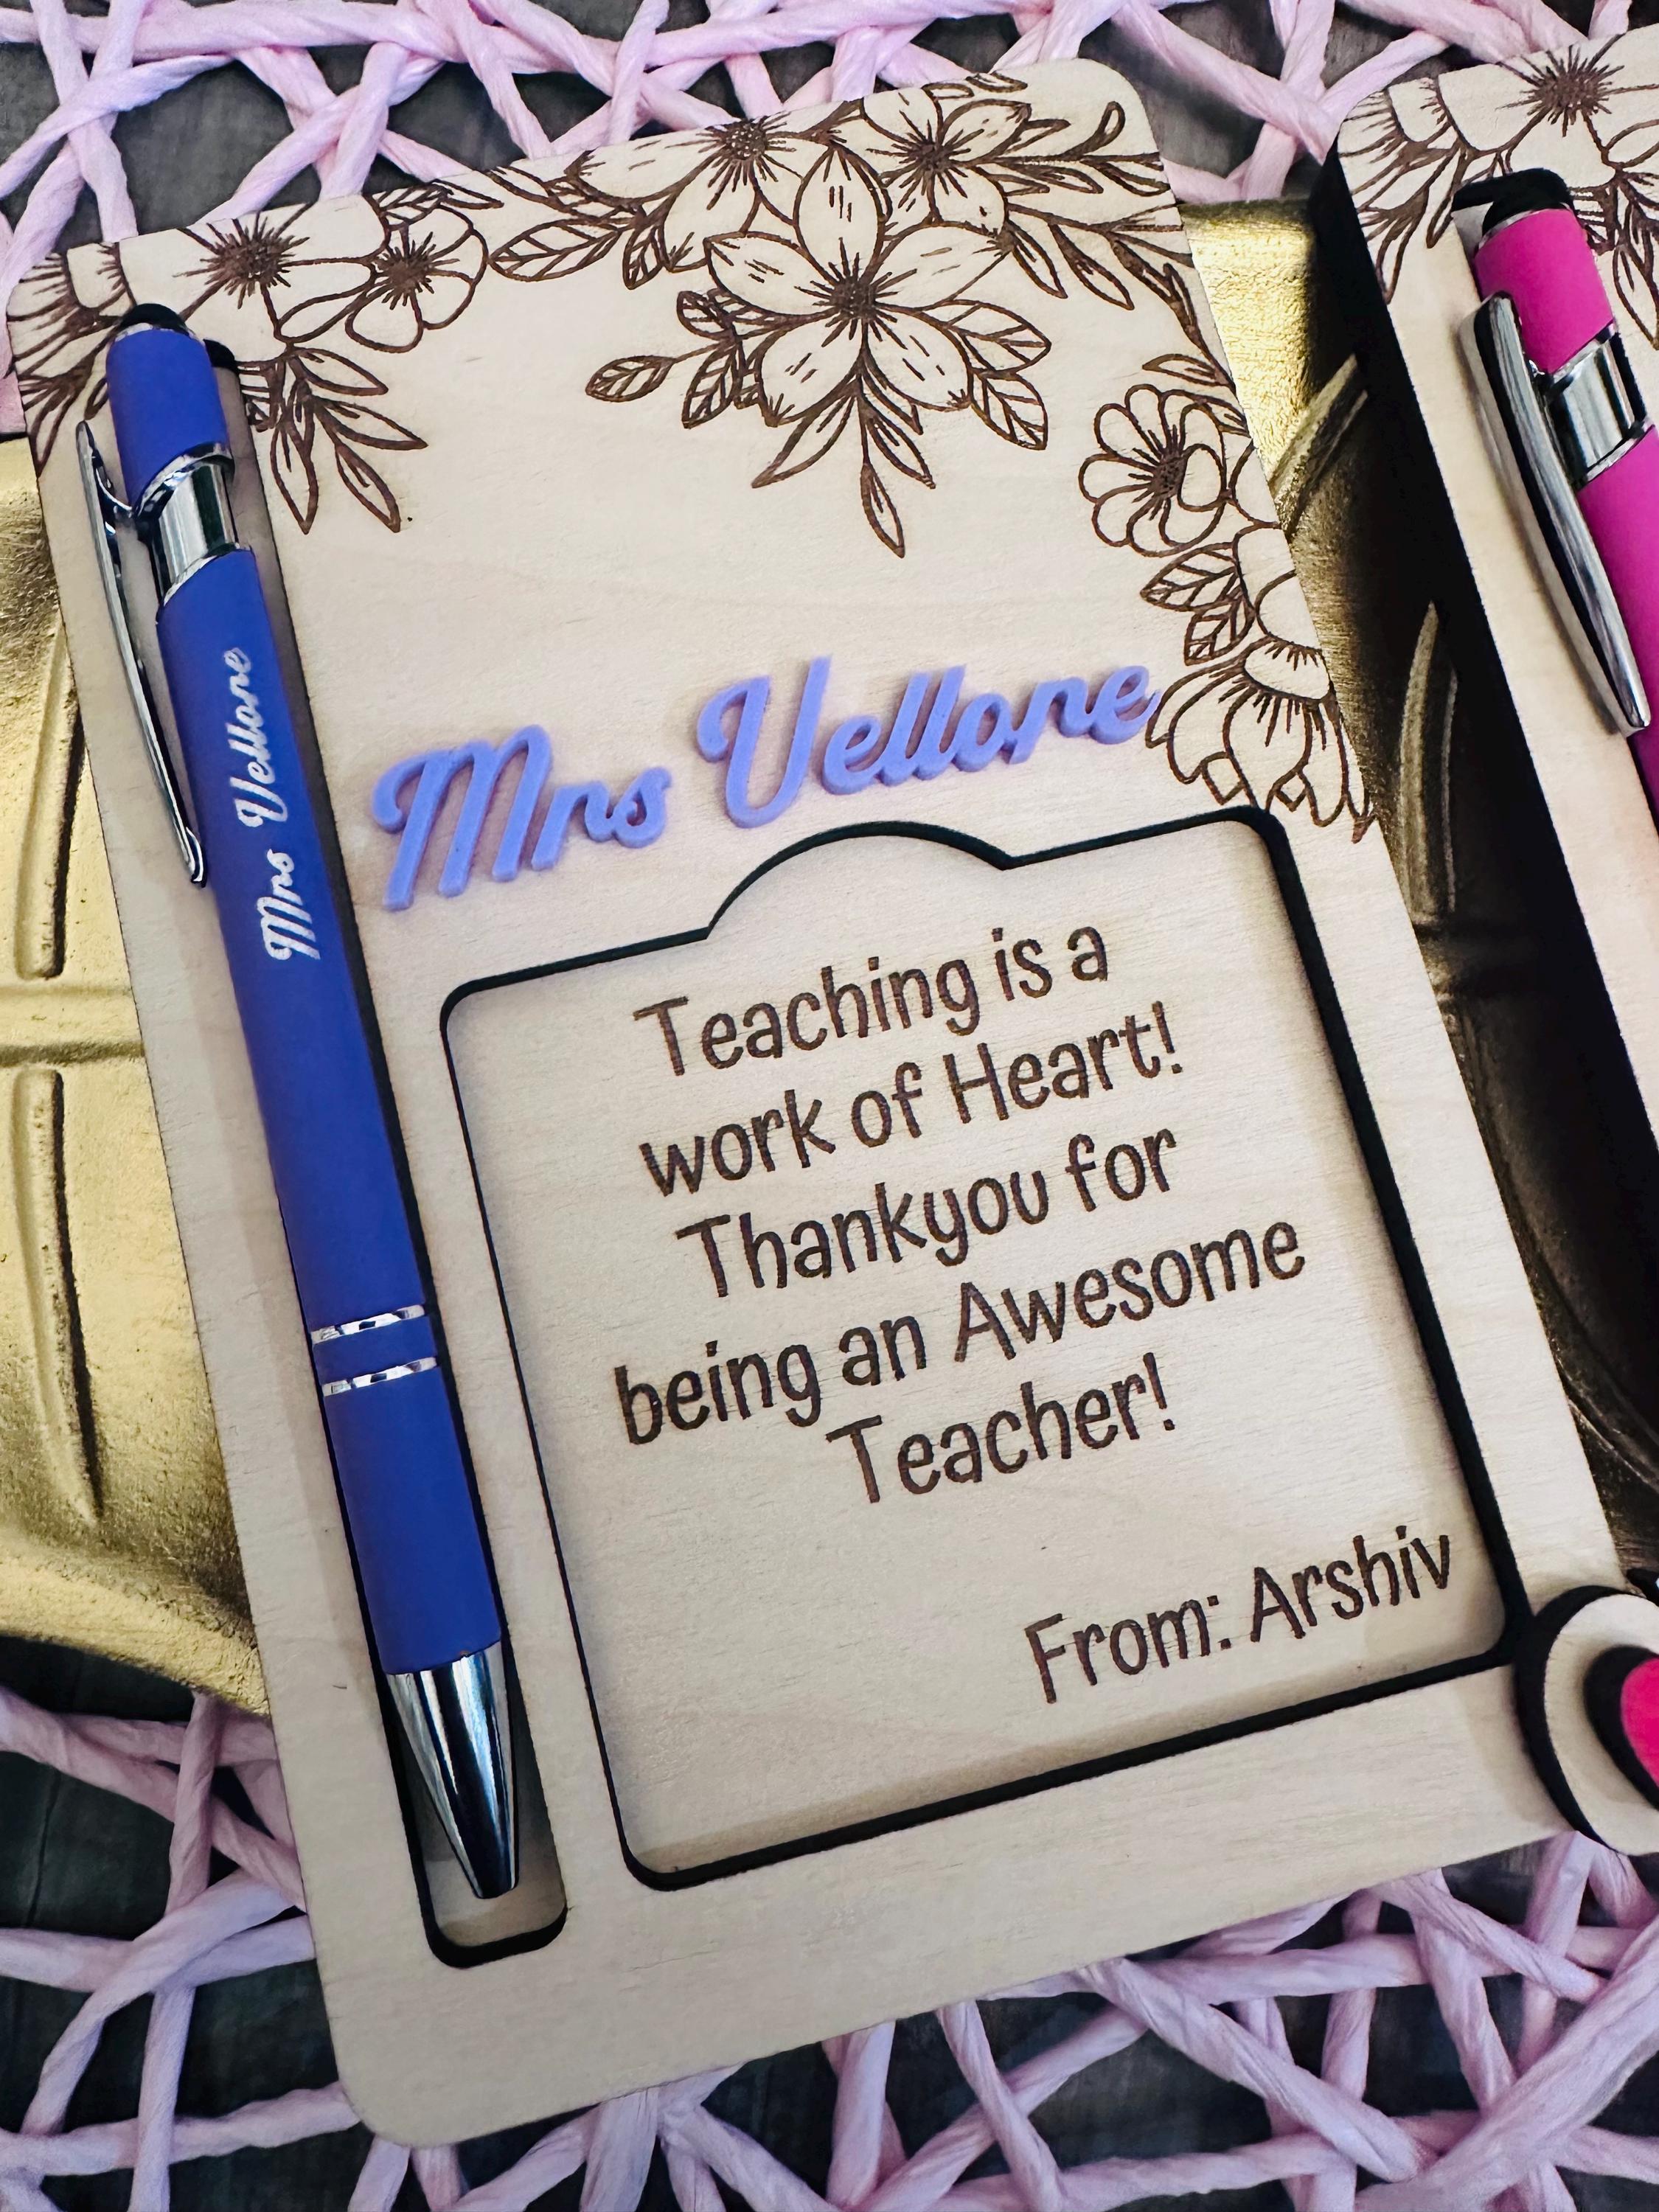 Mrs Vellore
Mrs Vellore
Teaching is a
work of Heart!
Thankyou for
being an Awesome
Teacher!
From: Arshiv